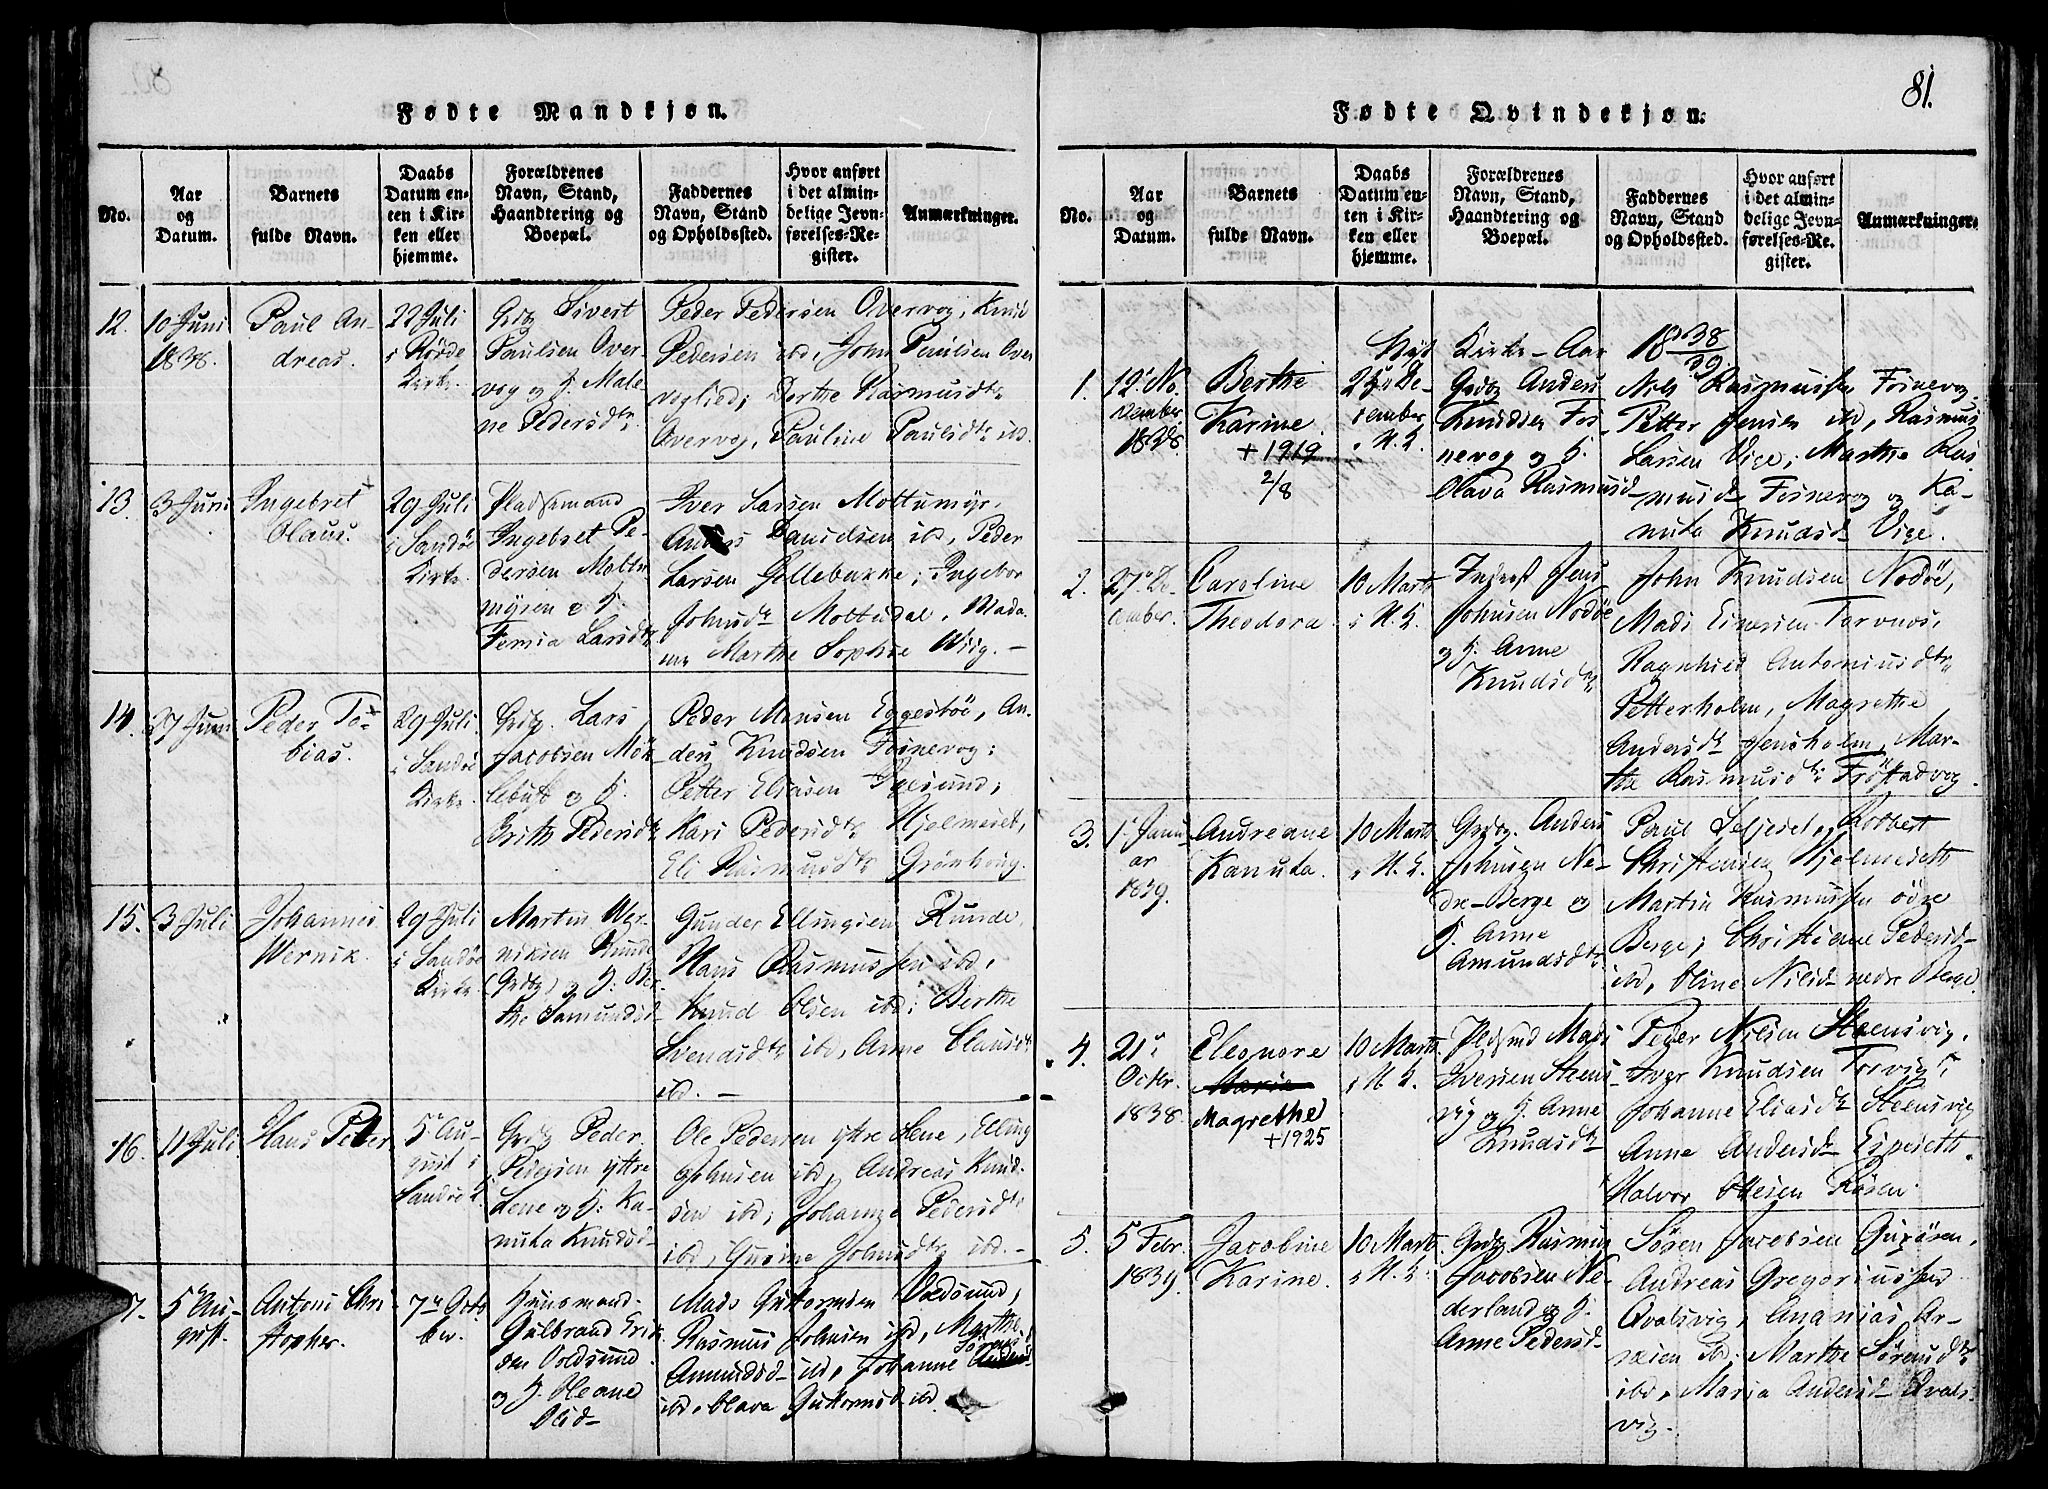 Fødte Mandkjøn.
No.
Aar
og
Datum.
Barnets
fulde Navn.
Daabs
Datum en-
ten i Kir-
ken eller
hjemme.
Forældrenes
Navn, Stand,
Haandtering og
Boepæl.
Faddernes
Navn, Stand
og Opholdssted.
Hvor anført
i det almin-
delige Jevn-
førelses-Re-
gister.
Anmærkninger.
12.
10 Juni
1838.
Paul An-
dreas.
22 Juli
i Rörde
Kirke.
Grdbr Sivert
Paulsen Over-
vog og H. Male-
ne Pedersdtr
Peder Pedersen Overvog, Knud
Pedersen ibd, John Paulsen Over
voglied; Dorthe Rasmusdtr
Overvog, Pauline Paulsdtr ibd.
13.
3 Juni
Ingebret
Olaus.
29 Juli
i Sandöe
Kirke.
Pladsemand
Ingebret Pe-
dersen Moltu-
myren & H.
Larsdtr
Iver Larsen Moltumyr,
ibd, Peder
Larsen Ingebor
Johnsdtr Moltudal, Mada-
me Marthe Sophie Wiig.-
14.
27 Juni
Peder To-
bias.
29 Juli
i Sandöe
Kirke.
Grdbr. Lars
Jacobsen Mök-
lebust og H.
Pedersdtr
Peder Monsen Eggesböe, An-
ders Knudsen Fosnevog;
Petter Eliasen Igesund;
Kari Pedersdtr Hjelmeset,
Eli Rasmusdtr Grönhoug.
15.
3 Juli
Johannes
Wernik.
29 Juli
i Sandöe
Kirke.
Martin Wer-
niksen Runde
(Grdbr) og H. Ber-
the Samundsd-
Gunder Ellingsen Runde,
Hans Rasmussen ibd,
Knud Olsen ibd; Berthe
Svendsdtr ibd, Anne Clausdtr
ibd. -
16.
11 Juli
Hans Peter
5 Au-
gust i
Sandöe K.
Grdbr Peder
Pedersen yttre
Lene og H. Ka-
nuta Knudsd-
Ole Pedersen yttre Lene, Elling
Johnsen ibd, Andreas Knud-
sen ibd; Johanne Pedersdtr
ibd, Gurine Johnsdtr ibd.-
17.
5 Au-
gust.
Antoni Chri
stopher.
7 Octo
ber.
Huusmand
Gulbrand Erik
sen Voldsund
og H. Oleane
Olsd-
Mads Guttormsen Voldsund,
Rasmus Johnsen ibd, Marthe
Amundsd- ibd, Johanne
ibd, Olava Guttormsd ibd.
81.
Fødte Qvindekjøn.
No.
Aar
og
Datum.
Barnets
fulde Navn.
Daabs
Datum en-
ten i Kir-
ken eller
hjemme.
Forældrenes
Navn, Stand,
Haandtering og
Boepæl.
Faddernes
Navn, Stand
og Opholdssted.
Hvor anført
i det almin-
delige Jevn-
førelses-Re-
gister.
Anmærkninger.
Nyt Kirke-Aar 1838/39
1.
12 No-
vember
1838.
Berthe
Karine
+ 1919
2/8
25 De-
cember
i U. K.
Grdbr Anders
Knudsen Fos-
nevog og H.
Olava Rasmusd-
Nels Rasmussen Fosnevog,
Petter Jensen ibd, Rasmus
Larsen Vige; Marthe Ras-
musdtr Fosnevog og Ka-
nuta Knudsd- Vige.
2.
27 De-
cember.
Caroline
Theodora.
10 Marts
i U. K.
Inderst Jens
Johnsen Nodöe
og H. Anne
Knudsdtr
John Knudsen Nodöe,
Mads Torvnes,
Ragnhild Antoniusdtr
Petterholm, Magrethe
Andersdtr Jensholm, Mar-
the Rasmusdtr Fröstadvog.
3.
1 Janu-
ar
1839.
Andreane
Kanuta.
10 Marts
i U. K.
Grdbr. Anders
Johnsen Ne-
dre-Berge og
H. Anne
Amundsdtr
Paul Robbert
Christensen Hjelmeseth
Martin Rasmussen ödre
Berge; Christiane Pedersd-
ibd, Oline Nilsd- nedre Berge.
4.
21
Octbr.
1838.
Eleonore
Maria
Magrethe
+1925
10 Marts
i U. K.
Pldsmd Mads
Iversen Steens-
vig og H. Anne
Knudsdtr
Peder Nilsen Steensvig,
Iver Knudsen Torvig;
Johanne Eliasdtr Steensvig
Anne Andersd- Espeseth.
Halvor Ottesen Rösen.
5.
5 Febr.
1839.
Jacobine
Karine.
10 Marts
i U. K.
Grdbr Rasmus
Jacobsen Ne-
derland og H.
Anne Pedersd-
Sören Jacobsen Gurören,
Andreas Gregoriussen
Qvalsvig, Ananias Ar-
nesen ibd; Marthe Sörensdtr
ibd, Maria Andersd- Qvals-
vig.